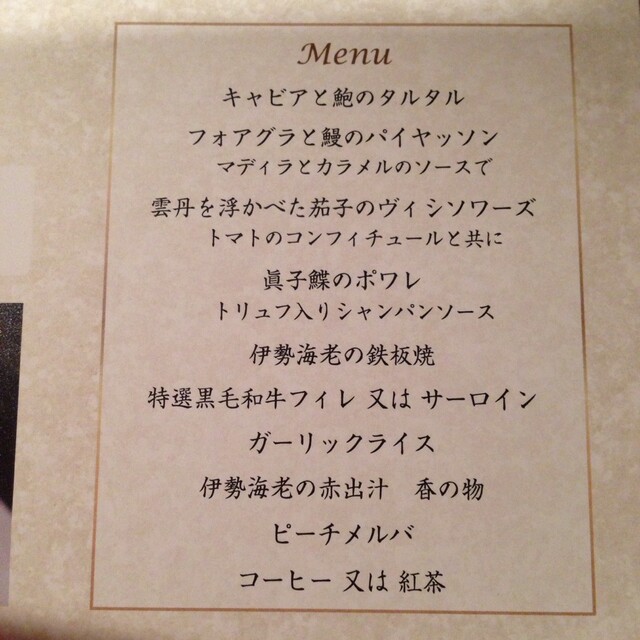 Menu
キャビアと鮑のタルタル
フォアグラと鰻のパイヤッソン
マディラとカラメルのソースで
雲丹を浮かべた茄子のヴィシソワーズ
トマトのコンフィチュールと共に
眞子鰈のポワレ
トリュフ入りシャンパンソース
伊勢海老の鉄板焼
特選黒毛和牛フィレ 又は サーロイン
ガーリックライス
伊勢海老の赤出汁　香の物
ピーチメルバ
コーヒー 又は 紅茶